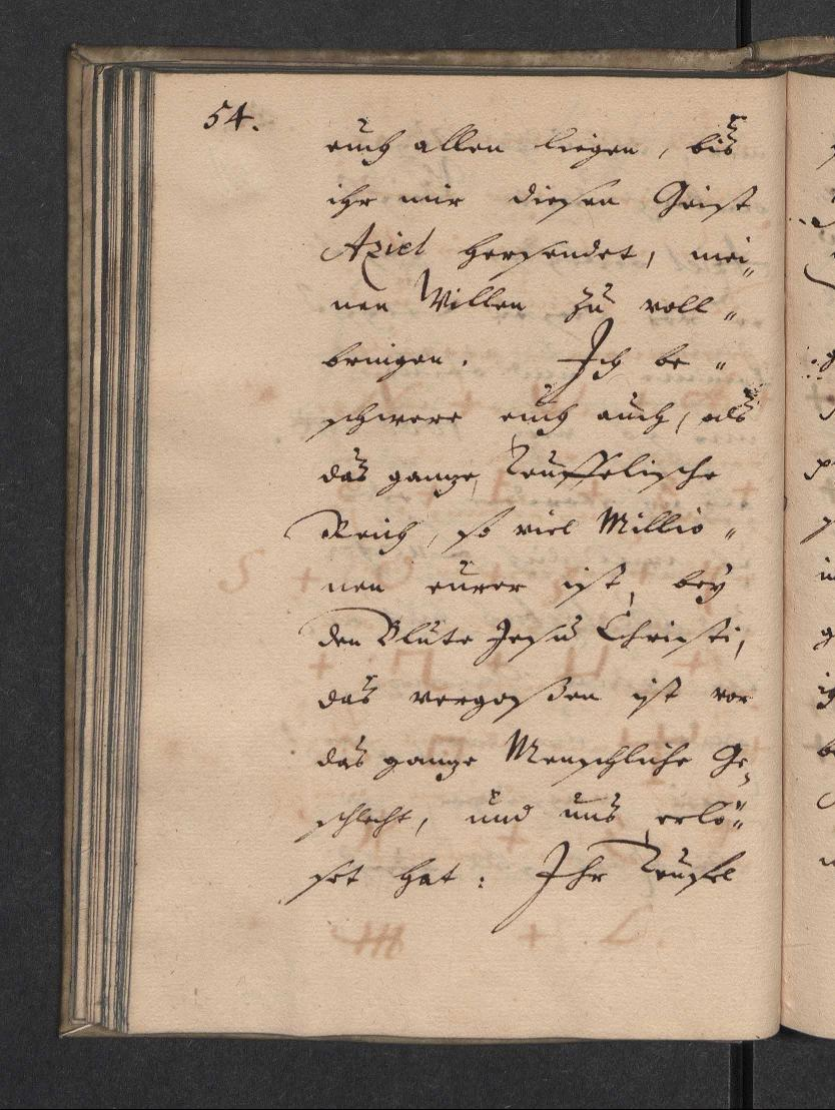 54.
euch allen liegen, bis
ihr mir diesen Geist
Aziel hersendet, mei„
nen Willen zu voll„
bringen. Ich be„
schwere euch auch, als
das gantze Teuffelische
Reich, so viel Millio„
nen eurer ist, bey
den Blute Jesu Christi,
das vergoßen ist vor
das gantze Menschliche Ge„
schlecht, und uns erlö„
set hat: Ihr Teufel